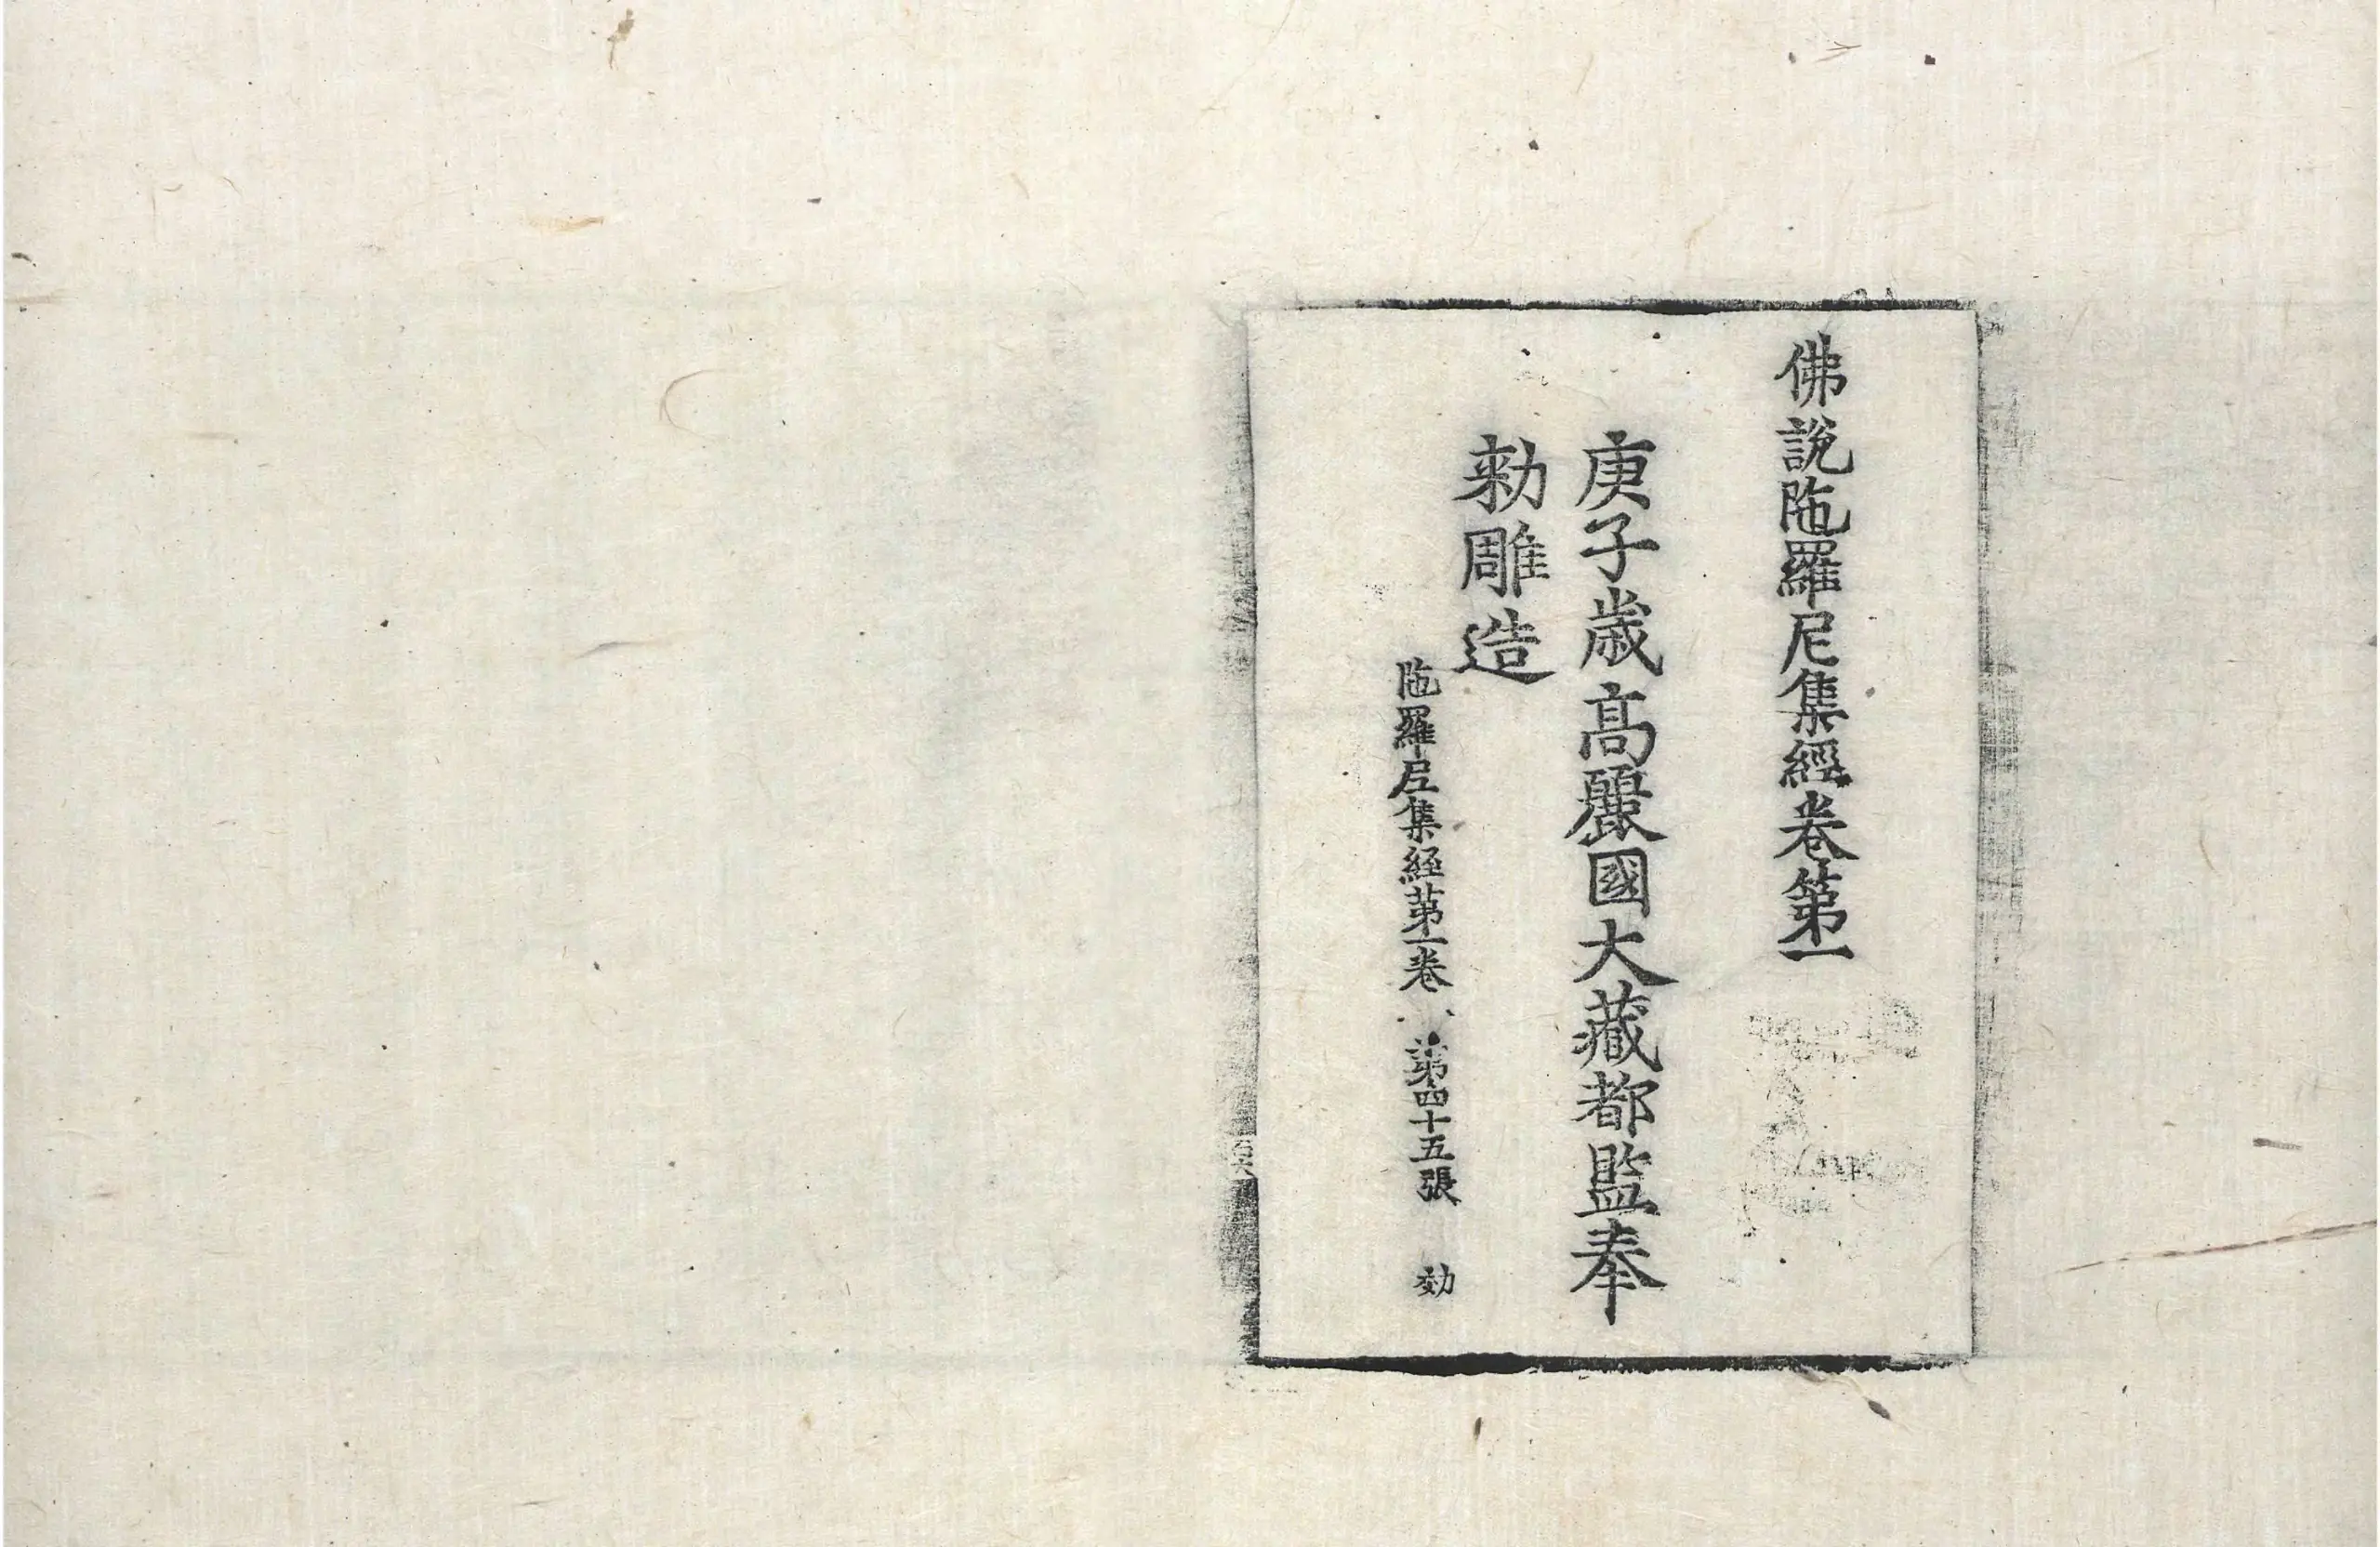 佛說陁羅尼集經卷第一
庚子歲高麗國大藏都監奉
勑雕造
陁羅尼集經第一卷　第四十五張　効